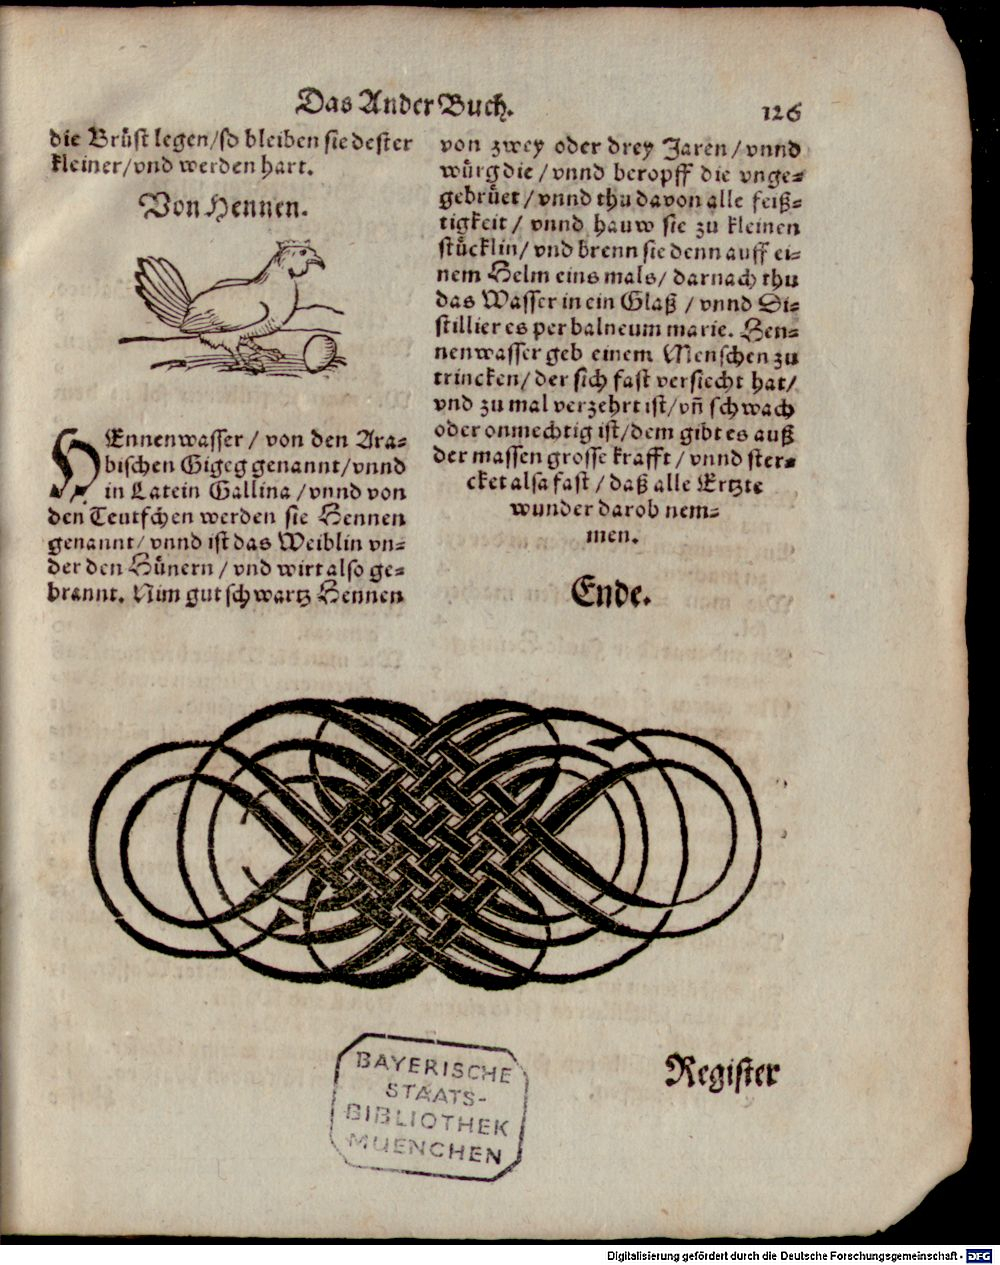 Das Ander Buch.
126
die Brüst legen/so bleiben sie dester
kleiner/vnd werden hart.
Von Hennen.
HEnnenwasser / von den Ara=
bischen Gigeg genannt/vnnd
in Latein Gallina / vnnd von
den Teutschen werden sie Hennen
genannt/ vnnd ist das Weiblin vn=
der den Hünern / vnd wirt also ge=
brannt. Nim gut schwartz Hennen
von zwey oder drey Jaren / vnnd
würg die / vnnd beropff die vnge=
gebrüet / vnnd thu davon alle feiß=
tigkeit / vnnd hauw sie zu kleinen
stücklin / vnd brenn sie denn auff ei=
nem Helm eins mals / darnach thu
das Wasser in ein Glaß / vnnd Di=
stillier es per balneum marie. Hen=
nenwasser geb einem Menschen zu
trincken / der sich fast versiecht hat/
vnd zu mal verzehrt ist/vñ schwach
oder onmechtig ist/dem gibt es auß
der massen grosse krafft / vnnd ster=
cket alsa fast / daß alle Ertzte
wunder darob nem=
men.
Ende.
Register
BAYERISCHE
STAATS-
BIBLIOTHEK
MUENCHEN
Digitalisierung gefördert durch die Deutsche Forschungsgemeinschaft - DFG